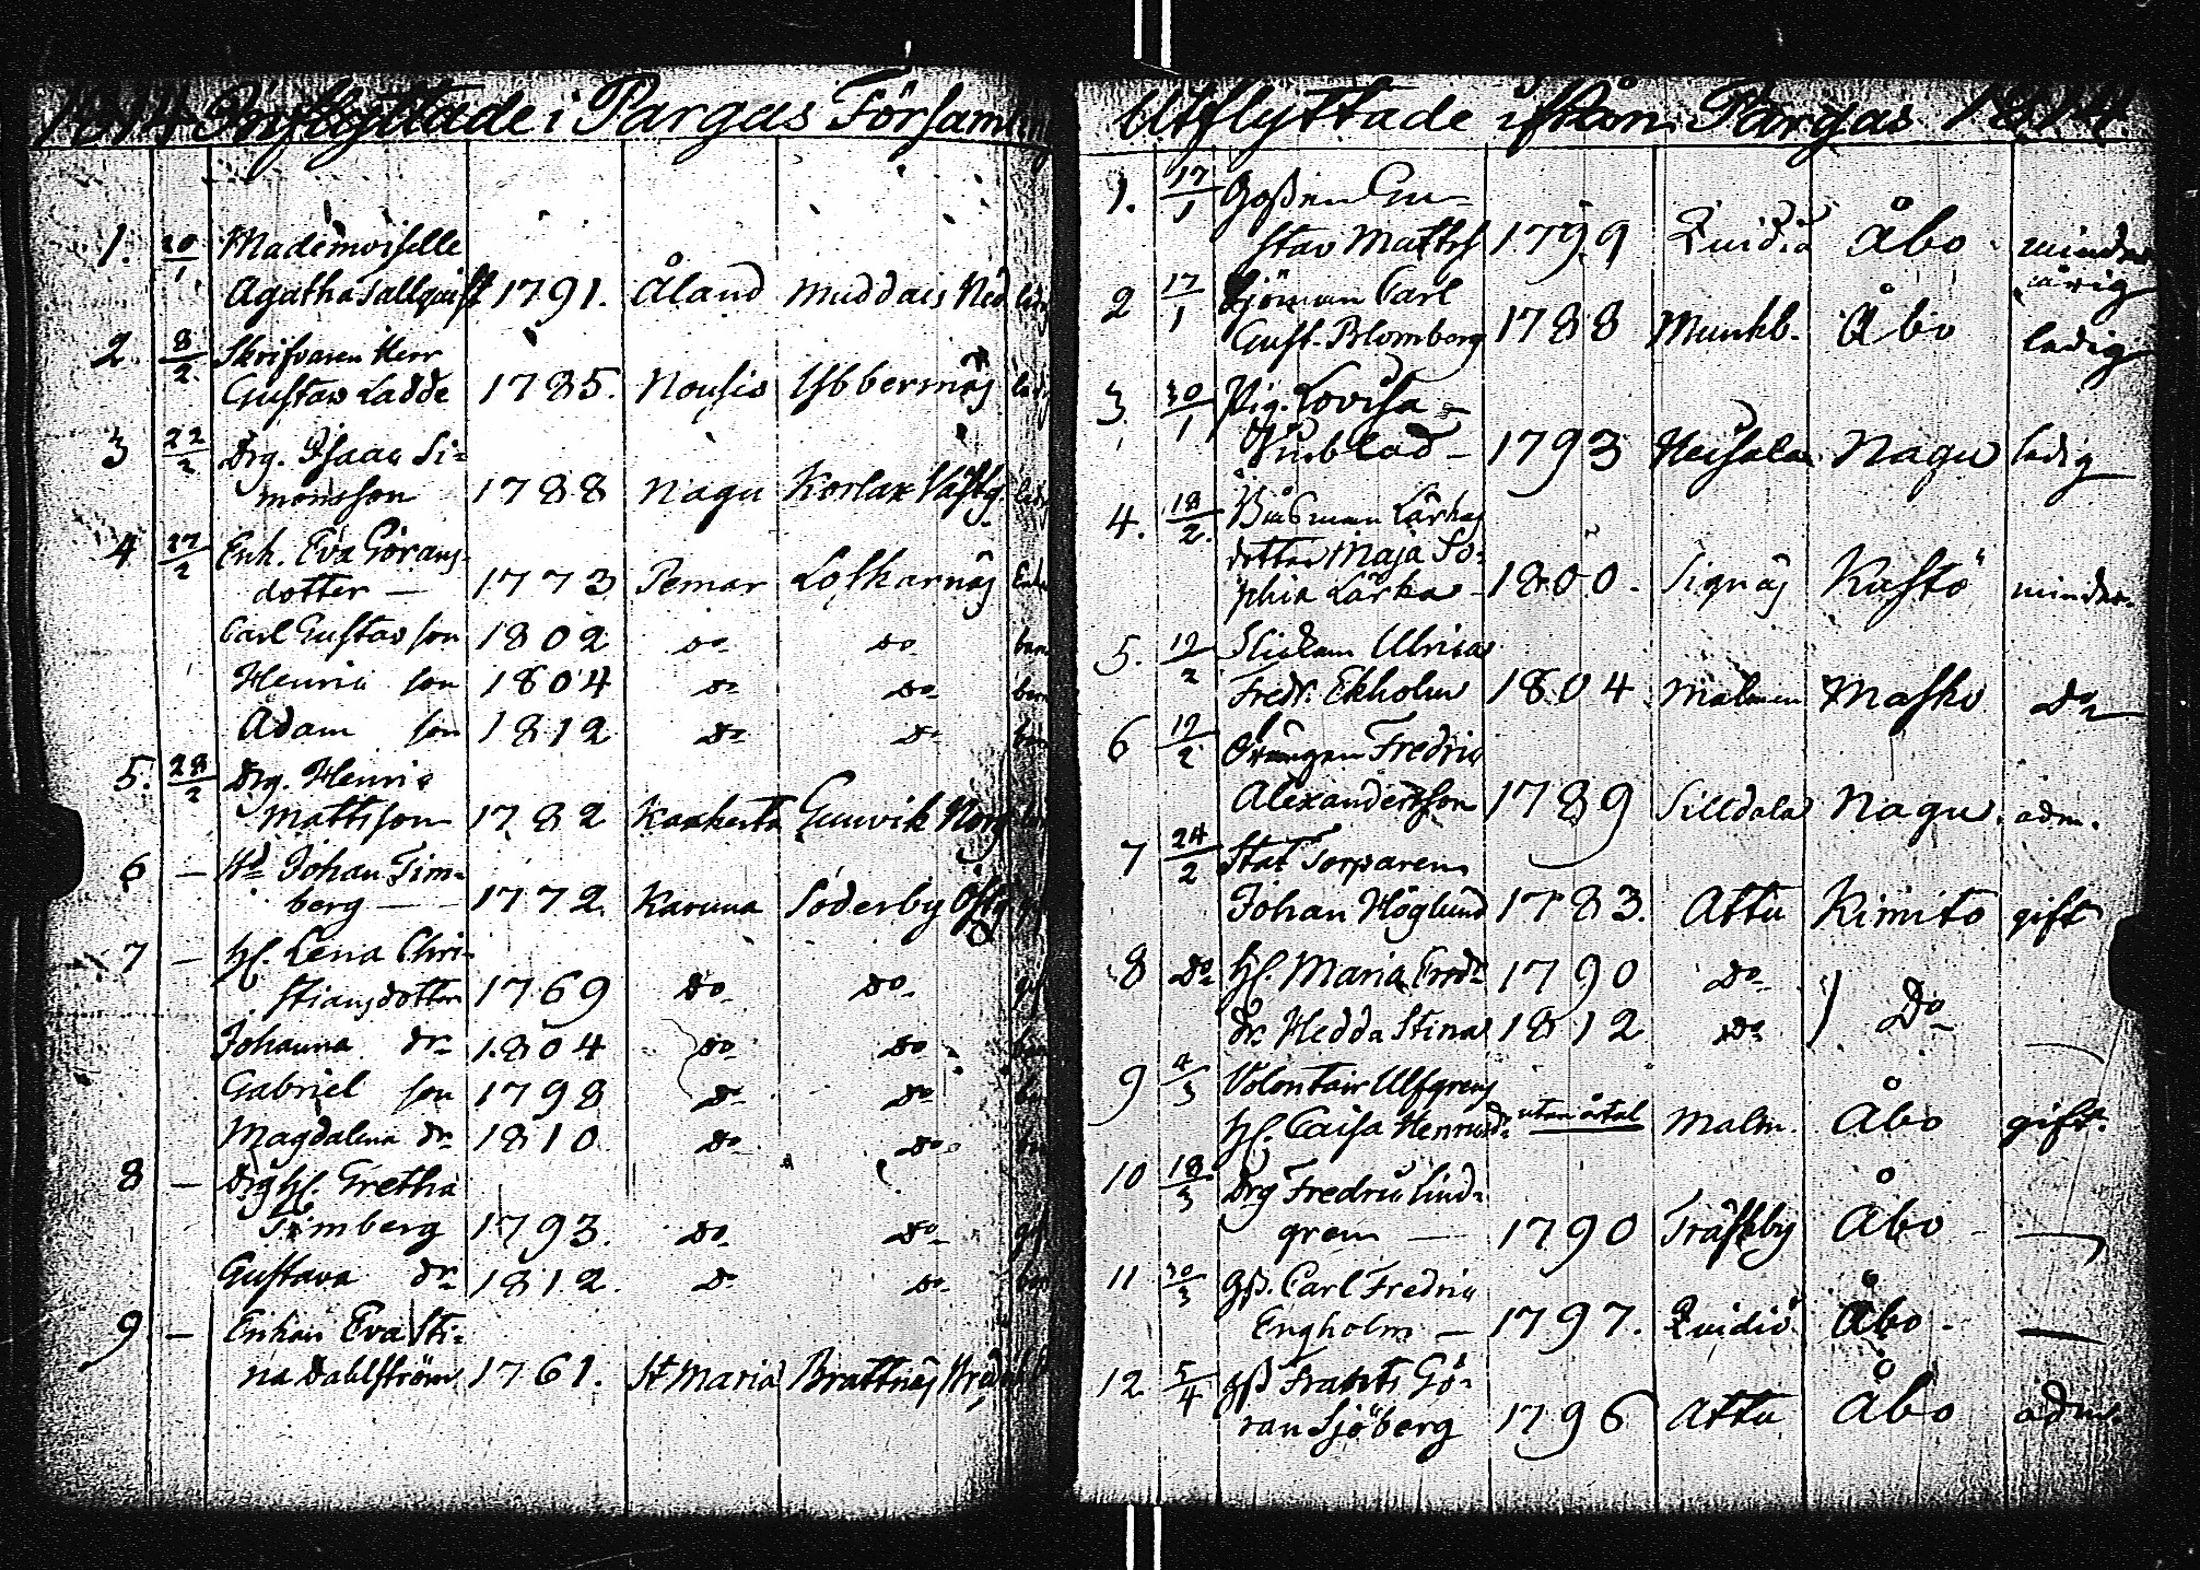 1814 Inflyttade i Pargas Församl
1. 20/1 Mademoiselle
Agatha Sallquist 1791. Åland Muddais Ned ledig
2. 8/2 Skrifvaren Herr
Gustav Ladde 1785. Nousis Ybbernäs ledig
3 22/2 Drg. Isaac Si=
monsson 1788 Nagu Korlax Västg.
4 27/2 Enk. Eva Görans=
dotter — 1773 Pemar Lofsarnäs Enk
Carl Gustav son 1802 do do barn
Henric son 1804 do do barn
Adam son 1812 do do barn
5. 28/2 Drg. Henric
Mattsson 1782 Gunvik Norg
6 — Johan Tim=
berg — 1772. Karuna Söderby Östg
7 — H. Lena Chri=
stiansdotter 1769 do do gif
Johanna dr 1804 do do barn
Gabriel son 1798 do do
Magdalena dr 1810 do do
8 — Drg H. Gretha
Timberg 1793. do do
Gustava dr 1812. do do bar
9 — Enkan Eva Sti=
na Dahlström 1761. St Maria Brattnäs
Utflyttade ifrån Pargas 1814
1. 17/1 Gossen Gu=
stav Matts 1799 Quidia Åbo minder
årig
2 17/1 Sjöman Carl
Gust. Blomberg 1788 Munkb. Åbo ledig
3 30/1 Pig. Lovisa
1793 Heisala Nagu ledig
4. 18/2. Båtsman Lärkas
dotter Maja So=
phia Lärka 1800. Signäs Kustö minder.
5. 19/2 Flickan Ulrica
Fredr. Ekholm 1804 Malmen Masko do
6 19/2 Drängen Fredric
Alexandersson 1789 Silldala Nagu. adm.
7 24/2 Stat Torparen
Johan Höglund 1783. Attu Kimito gift
8 do H. Maria Ersdr 1790 do ) Do
Dr. Hedda Stina 1812 do
9 4/3 Volontair Ulfgrens
H. Caisa Henricsdr utan årtal Malm. Åbo gift.
10 18/3 Drg Fredric Lind=
gren — 1790 Träskby Åbo —
11 30/3 Gss. Carl Fredric
Engholm — 1797. Quidiö Åbo. —
12 5/4 gss Frants Gö=
ran Sjöberg 1796 Attu Åbo adm.